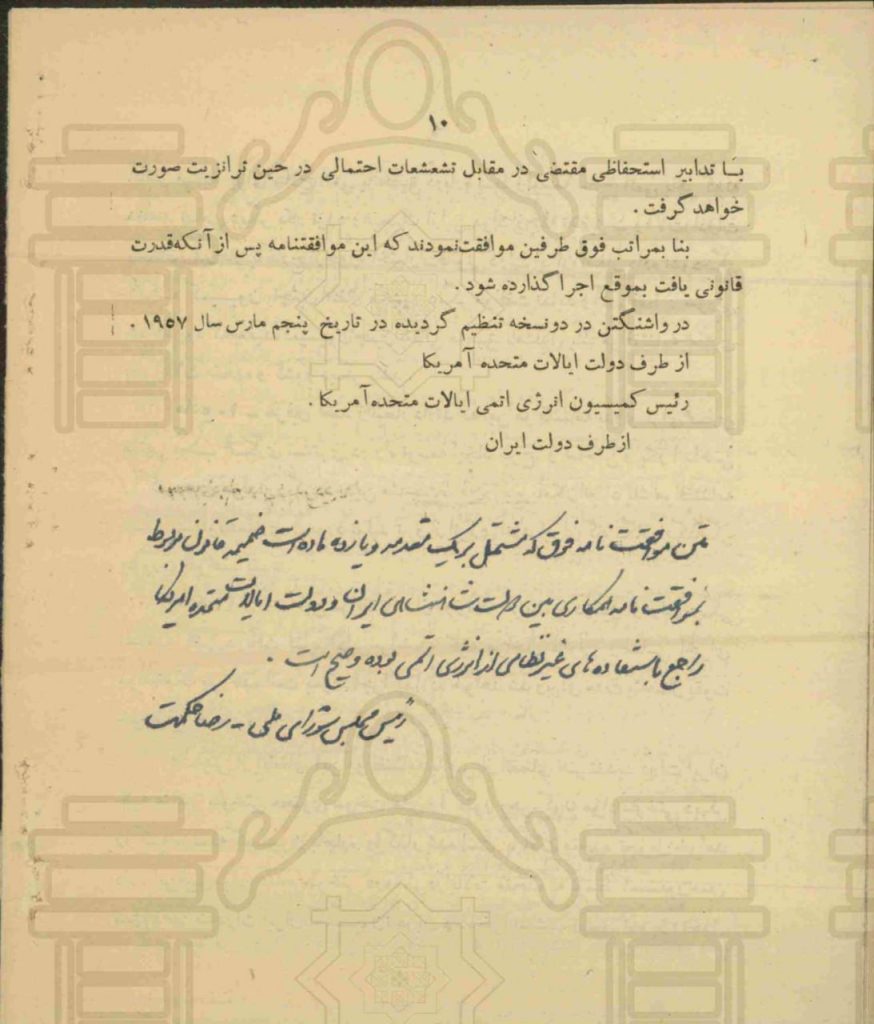 ۱۰
با تدابیر استحفاظی مقتضی در مقابل تشعشعات احتمالی در حین ترانزیت صورت
خواهد گرفت .
بنا بمراتب فوق طرفین موافقت‌نمودند که این موافقتنامه پس از آنکه‌قدرت
قانونی یافت بموقع اجرا گذارده شود .
در واشنگتن در دونسخه تنظیم گردیده در تاریخ پنجم مارس سال ۱۹۵۷ .
از طرف دولت ایالات متحده آمریکا
رئیس کمیسیون انرژی اتمی ایالات متحده‌آمریکا .
ازطرف دولت ایران
متن موافقت نامه فوق که مشتمل بر یک مقدمه و یازده ماده است ضمیمه قانون مربوط
بموافقت نامه همکاری بین دولت شاهنشاهی ایران و دولت ایالات متحده امریکا
راجع باستفاده های غیر نظامی از انرژی اتمی بوده و صحیح است .
رئیس مجلس شورای ملی - رضا حکمت